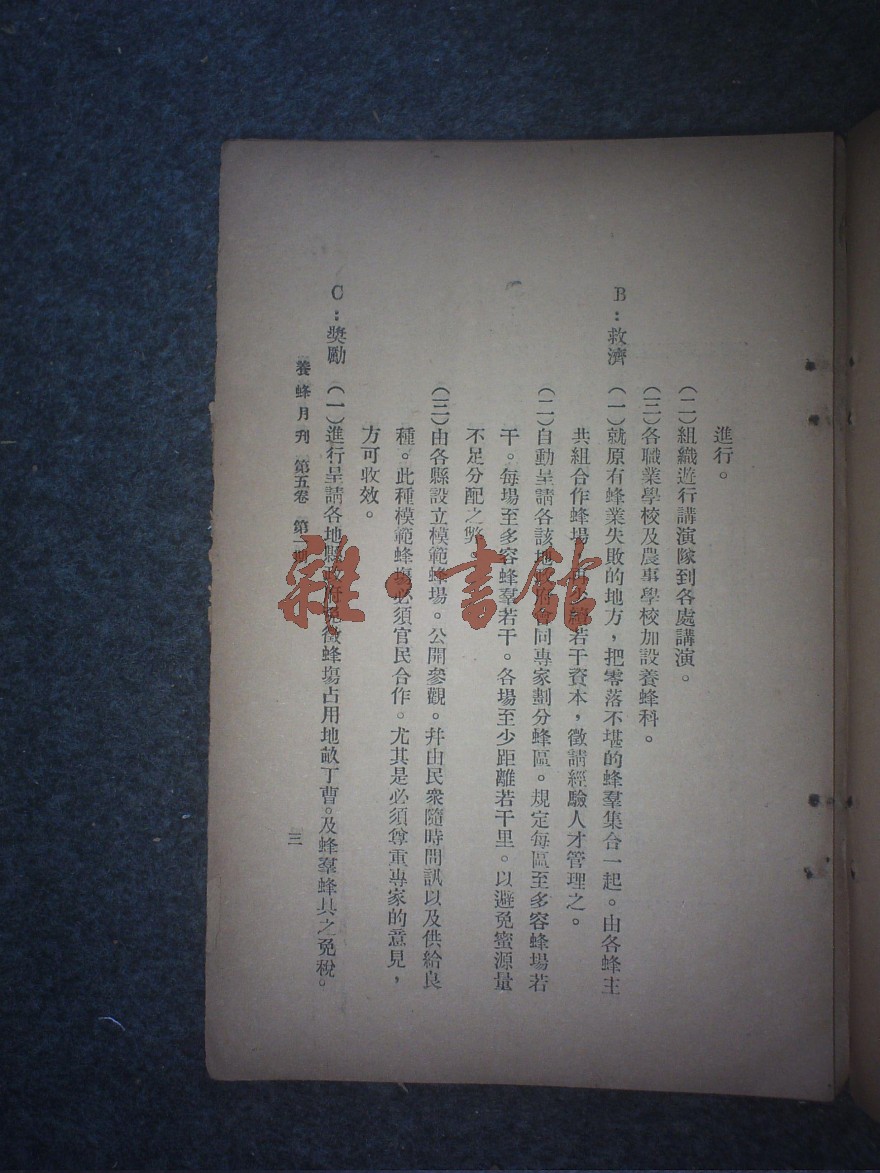 進行。
(二)組織遊行講演隊到各處講演。
(三)各職業學校及農事學校加設養蜂科。
B：救濟 (一)就原有蜂業失敗的地方，把零落不堪的蜂羣集合一起。由各蜂主
共組合作蜂場，若干資本，徵請經驗人才管理之。
(二)自動呈請各該地會同專家劃分蜂區。規定每區至多容蜂場若
干。每場至多容蜂羣若干。各場至少距離若干里。以避免蜜源量
不足分配之弊
(三)由各縣設立模範蜂場。公開參觀。幷由民衆隨時問訊以及供給良
種。此種模範蜂塲必須官民合作。尤其是必須尊重專家的意見，
方可收效。
C：獎勵 (一)進行呈請各地縣政府免徵蜂塲占用地畝丁曹。及蜂羣蜂具之免稅。
養蜂月刊 第五卷 第 期
三
雜·書館